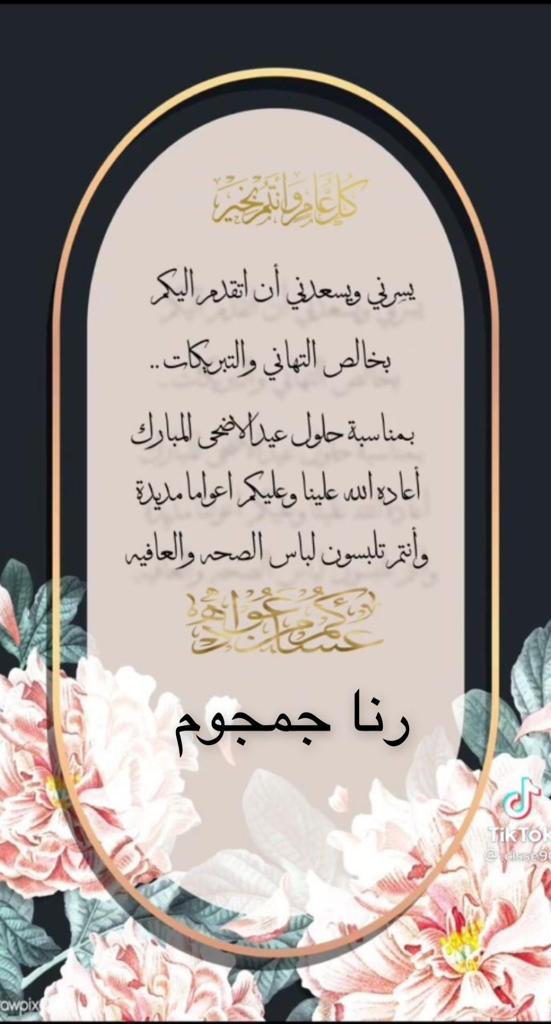 كل عام وأنتم بخير
يسرني ويسعدني أن اتقدم اليكم
بخالص التهاني والتبريكات ..
بمناسبة حلول عيد الاضحى المبارك
أعاده الله علينا وعليكم اعواما مديدة
وأنتم تلبسون لباس الصحه والعافيه
عساكم من عواده
رنا جمجوم
TikTok